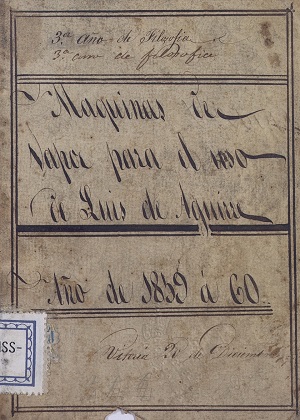 3.ª Año de Filosofia
3.ª ano de filosofia
Maquinas de
Vapor para el uso
de Luis de Aguirre
Año de 1859 à 60.
Vitoria 20 de
SS-